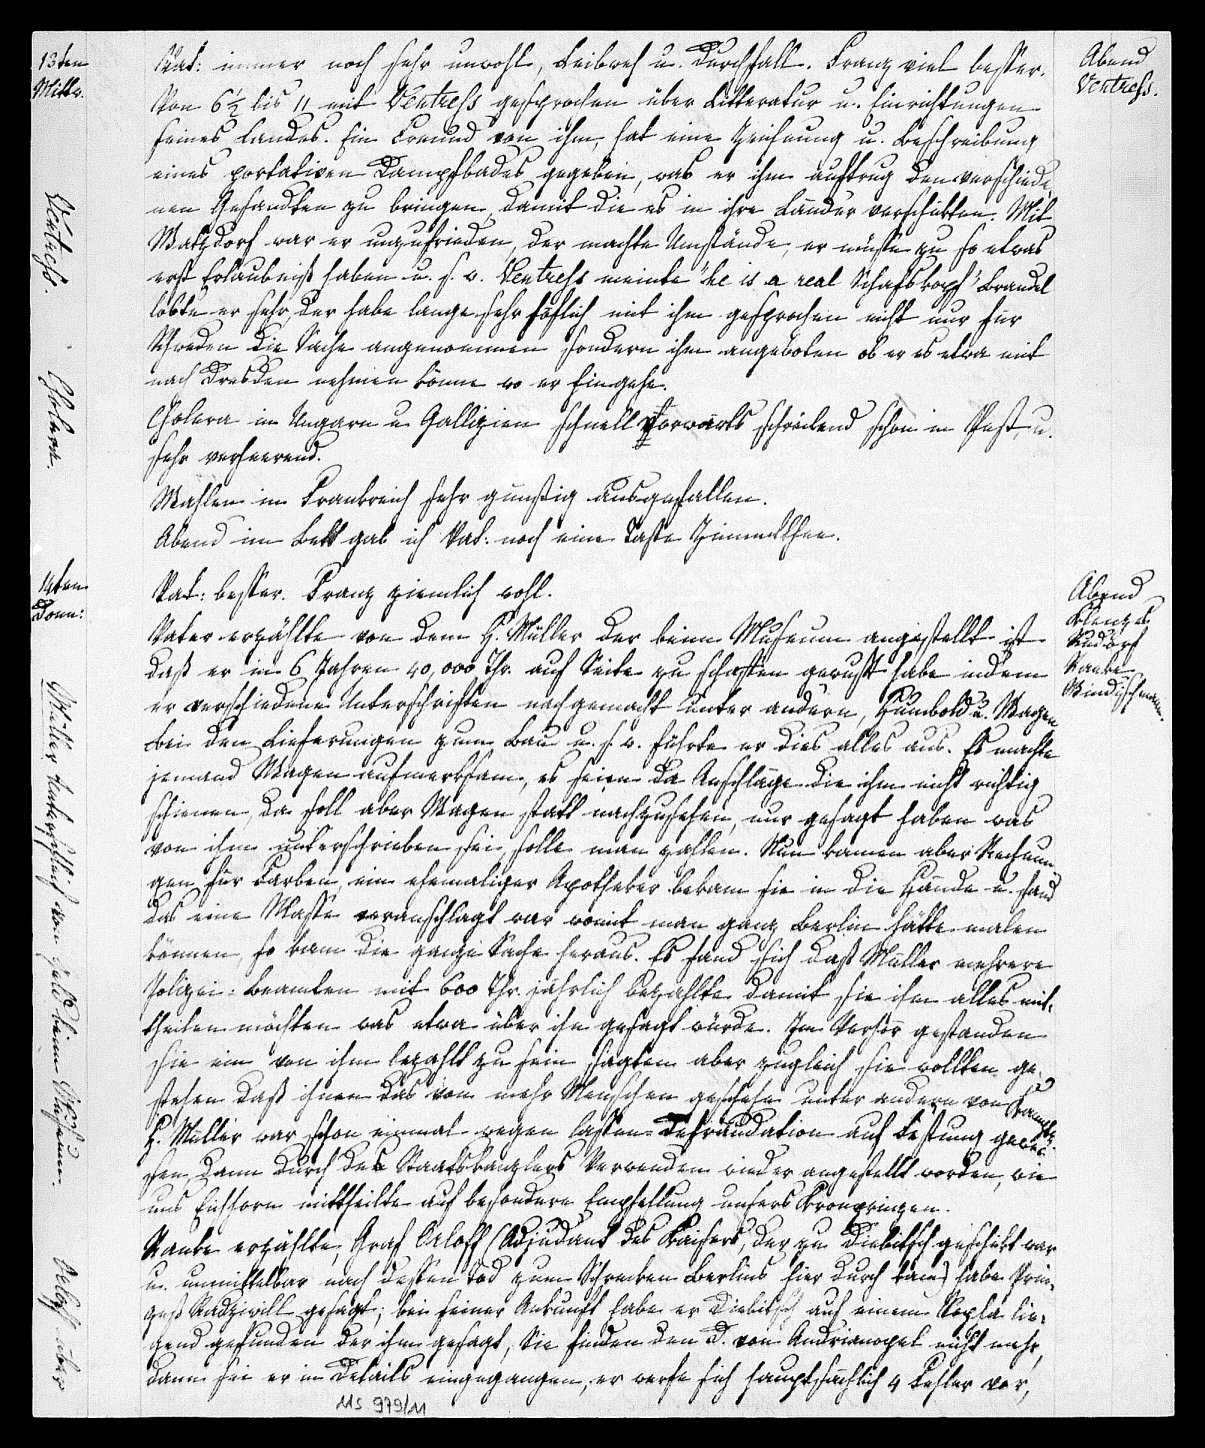 13ten
Mittw.
Vat: immer noch sehr unwohl, Leibweh u. Durchfall. Franz viel besser.
Abend
Ventress.
Von 6½ bis 11 mit Ventress gesprochen über Litteratur u. Einrichtungen
seines Landes. Ein Freund von ihm, hat eine Zeichnung u. Beschreibung
eines portativen Dampfbades gegeben, was er ihm auftrug den verschiede
nen Gesandten zu bringen, damit die es in ihre Länder verschikten. Mit
Watzdorf war er unzufrieden, der machte Umstände, er müsse zu so etwas
erst Erlaubniß haben u. s. w. Ventress meinte "he is a real Schafskopf" Brandel
lobte er sehr, der habe lange sehr höflich mit ihm gesprochen nicht nur für
Schweden die Sache angenommen sondern ihm angeboten ob er es etwa mit
nach Dresden nehmen könne wo er hingehe.
Cholera in Ungarn u Gallizien schnell vorwärts schreitend schon in Pest, u.
sehr verheerend.
Wahlen in Frankreich sehr günstig ausgefallen.
Abend im Bett gab ich Vat: noch eine Tasse Zimmetthee.
Ventress.
Cholera.
14ten
Donn:
Vat: besser. Franz ziemlich wohl.
Abend
Klenzes
Rudorf
Ranke
Windischmann.
Vater erzählte von dem H. Müller der beim Museum angestellt ist
daß er in 6 Jahren 40,000 Thr. auf Seite zu schaffen gewußt habe indem
er verschiedene Unterschriften nachgemacht unter andern, Humbold u. Wagen
bei den Lieferungen zum Bau u. s. w. führte er dies alles aus. Es machte
jemand Wagen aufmerksam, es seien da Anschläge die ihm nicht richtig
schienen, da soll aber Wagen statt nachzusehen, nur gesagt haben was
von ihm unterschrieben sei, solle man zahlen. Nun kamen aber Rechnun
gen für Farben, ein ehemaliger Apotheker bekam sie in die Hände u. fand
das eine Masse veranschlagt war womit man ganz Berlin hätte malen
können, so kam die ganze Sache heraus. Es fand sich daß Müller mehrere
Polizei-Beamten mit 600 Thr. jährlich bezahlte damit sie ihm alles mit-
theilen möchten was etwa über ihn gesagt würde. Im Verhör gestanden
sie ein von ihm bezahlt zu sein sagten aber zugleich sie wollten ge-
stehen daß ihnen das von mehr Menschen geschehe unter andern von Kamptz.
H. Müller war schon einmal wegen Cassen Defraudation auf Festung gewe-
sen, dann durch des Staatskanzlers Verwenden wieder angestellt worden, wie
uns Eichhorn mittheilte auf besondere Empfehlung unsers Kronprinzen.
Ranke erzählte, Graf Orloff (Adjudant des Kaisers, der zu Diebitsch geschikt war
u. unmittelbar nach dessen Tod zum Schrecken Berlins hier durch kam) habe Prin-
zess Radziwill gesagt; bei seiner Ankunft habe er Diebitsch auf einem Sopha lie-
gend gefunden der ihm gesagt, Sie finden den D. von Andrianopel nicht mehr,
dann sei er in Details eingegangen, er werfe sich hauptsächlich 4 Fehler vor,
Müller Unterschleif von Geld beim Museum.
Orloff über
MS 979/11